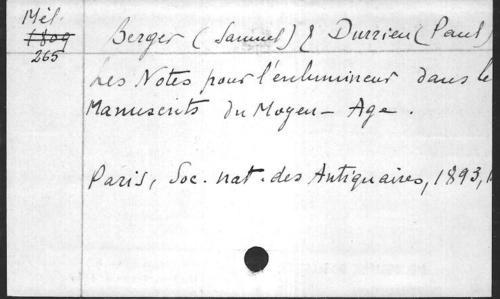 Mél.
1809
265
Berger (Samuel) & Durrieu (Paul)
Les Notes pour l'enlumineur dans le
Manuscrits du Moyen-Age.
Paris, Soc. nat. des Antiquaires, 1893,